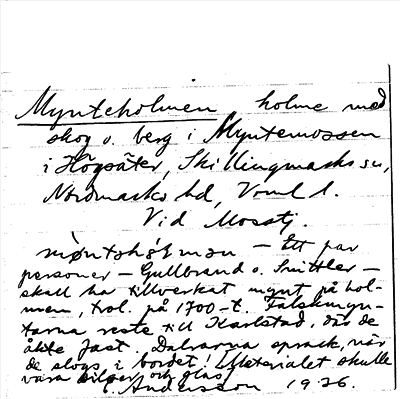 Mynteholmen holme med
skog o. berg i Myntemossen
i Högsäter, Skillingmarks sn,
Nordmarks hd, Vrml l.
Vid Mosstj.
møntshòlmən — Ett par
personer — Gullbrand o. Snittler —
skall ha tillverkat mynt på hol-
men, trol. på 1700-t. Falskmyn-
tarna reste till Karlstad, där de
åkte fast. Dalrarna sprack, när
de slogs i bordet! Materialet skulle
vara silver och glas.
Andersson 1926.